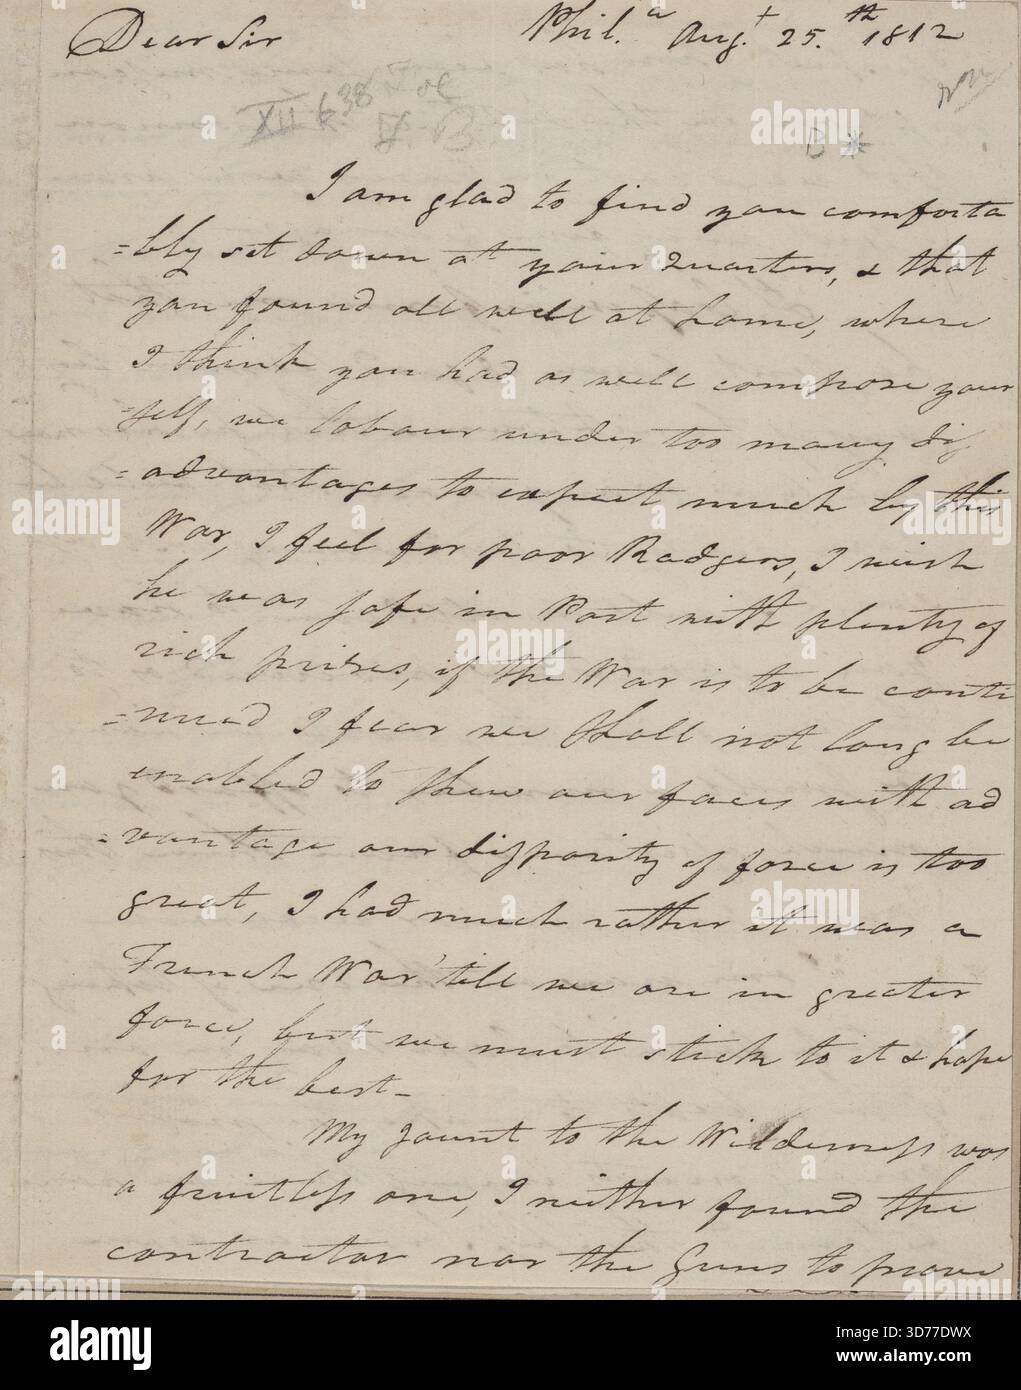 Dear Sir Phil.a Aug.t 25.th 1812
XII 638
B *
I am glad to find you comforta
=bly set down at your Quarters, & that
you found all well at home, where
I think you had as well compose your
=self, we labour under too many dis
=advantages to expect much by this
War, I feel for poor Rodgers, I wish
he was safe in Port with plenty of
rich prizes, if the War is to be conti
=nued I fear we shall not long be
enabled to shew our faces with ad
=vantage our disparity of force is too
great, I had much rather it was a
French War 'till we are in greater
force, but we must stick to it & hope
for the best_
My jaunt to the Wilderness was
a fruitless one, I neither found the
contractor nor the Guns to prove
alamy
Image ID: 3D77DWX
www.alamy.com